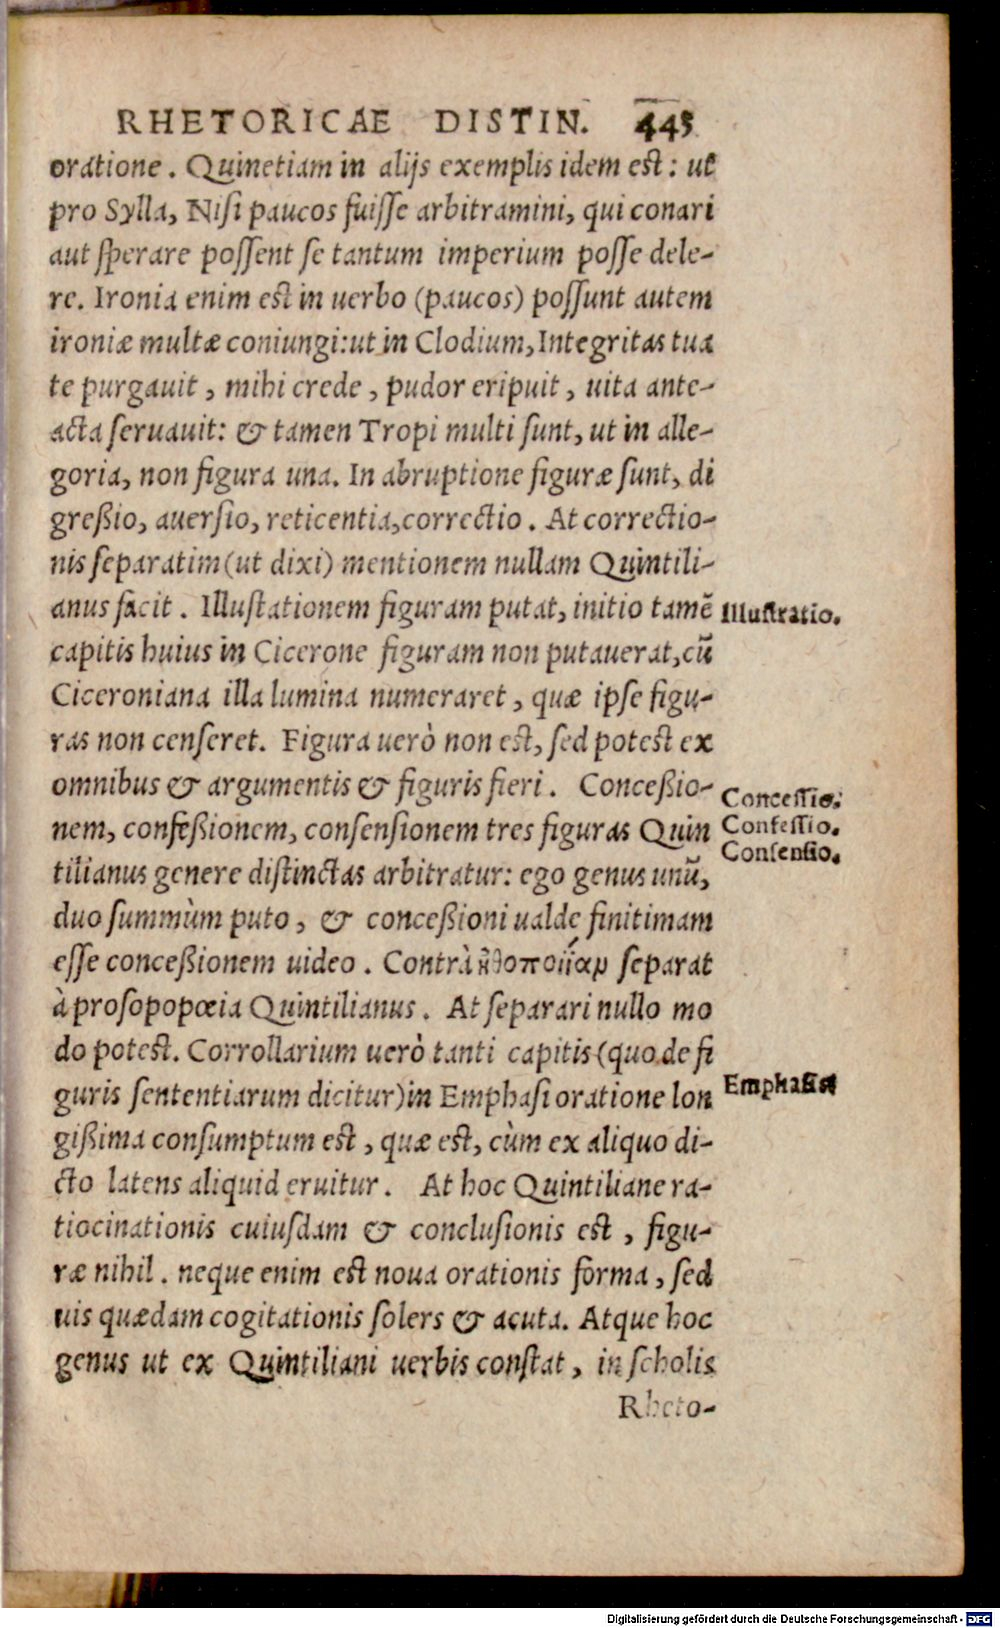 RHETORICAE DISTIN. 445
oratione. Quinetiam in alijs exemplis idem est: ut
pro Sylla, Nisi paucos fuisse arbitramini, qui conari
aut sperare possent se tantum imperium posse dele-
re. Ironia enim est in uerbo (paucos) possunt autem
ironiæ multæ coniungi: ut in Clodium, Integritas tua
te purgauit, mihi crede, pudor eripuit, uita ante-
acta seruauit: & tamen Tropi multi sunt, ut in alle-
goria, non figura una. In abruptione figuræ sunt, di
greßio, auersio, reticentia, correctio. At correctio-
nis separatim (ut dixi) mentionem nullam Quintili-
anus facit. Illustationem figuram putat, initio tamẽ
Illustratio.
capitis huius in Cicerone figuram non putauerat, cũ
Ciceroniana illa lumina numeraret, quæ ipse figu-
ras non censeret. Figura uerò non est, sed potest ex
omnibus & argumentis & figuris fieri. Conceßio-
Concessio.
nem, confeßionem, consensionem tres figuras Quin
Confessio.
Consensio.
tilianus genere distinctas arbitratur: ego genus unũ,
duo summùm puto, & conceßioni ualde finitimam
esse conceßionem uideo. Contrà ἠθοποιίαν separat
à prosopopœia Quintilianus. At separari nullo mo
do potest. Corrollarium uerò tanti capitis (quo de fi
guris sententiarum dicitur) in Emphasi oratione lon
Emphasis
gißima consumptum est, quæ est, cùm ex aliquo di-
cto latens aliquid eruitur. At hoc Quintiliane ra-
tiocinationis cuiusdam & conclusionis est, figu-
ræ nihil. neque enim est noua orationis forma, sed
uis quædam cogitationis solers & acuta. Atque hoc
genus ut ex Quintiliani uerbis constat, in scholis
Rheto-
Digitalisierung gefördert durch die Deutsche Forschungsgemeinschaft - DFG